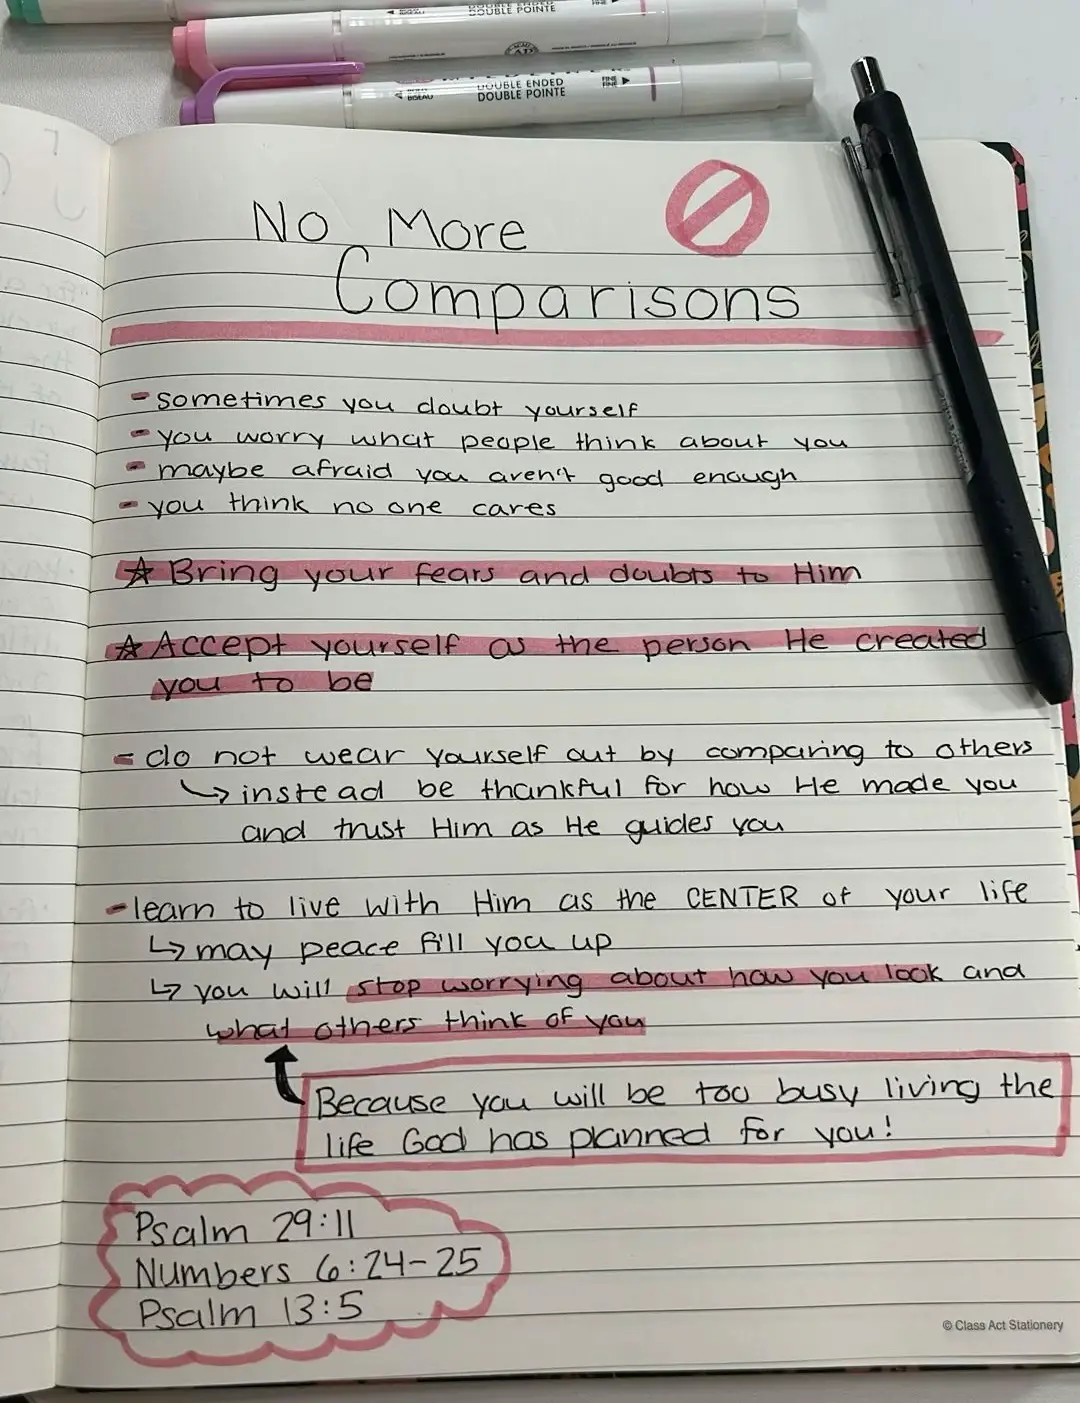 DOUBLE POINTE
DOUBLE ENDED
DOUBLE POINTE
FINE
No More
Comparisons
- sometimes you doubt yourself
- you worry what people think about you
- maybe afraid you aren't good enough
- you think no one cares
☆ Bring your fears and doubts to Him
☆ Accept yourself as the person He created
you to be
- do not wear yourself out by comparing to others
↳ instead be thankful for how He made you
and trust Him as He guides you
- learn to live with Him as the CENTER of your life
↳ may peace fill you up
↳ you will stop worrying about how you look and
what others think of you
Because you will be too busy living the
life God has planned for you!
Psalm 29:11
Numbers 6:24-25
Psalm 13:5
© Class Act Stationery